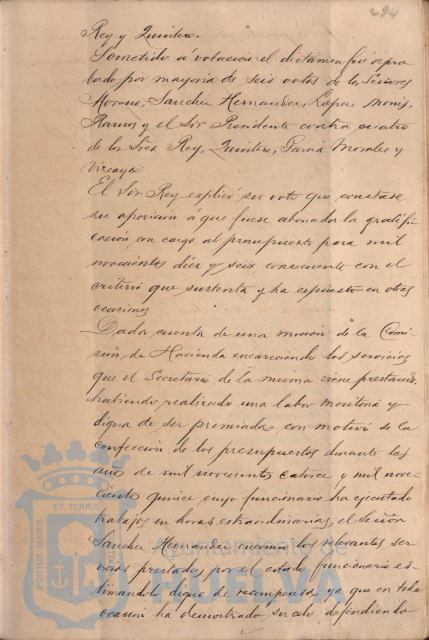 294
Rey y Quintero.
Sometido á votación el dictamen fué apro-
bado por mayoria de seis votos de los Señores
Moreno, Sanchez Hernandez, Lopez, Monís,
Ramos y el Sor Presidente contra cuatro
de los Sres Rey, Quintero, Garcia Morales y
Vizcaya.
El Sor Rey explicó su voto que constase
su oposición á que fuese abonada la gratifi-
cación con cargo al presupuesto para mil
novecientos diez y seis consecuente con el
criterio que sustenta y ha expuesto en otras
ocasiones
Dada cuenta de una moción de la Comi-
sión de Hacienda encareciendo los servicios
que el Secretario de la misma viene prestando,
habiendo realizado una labor meritoria y
digna de ser premiada con motivo de la
confección de los presupuestos durante los
años de mil novecientos catorce y mil nove-
cientos quince cuyo funcionario ha ejecutado
trabajos en horas extraordinarias, el Señor
Sanchez Hernandez encomia los relevantes ser-
vicios prestados por el citado funcionario es-
timandolo digno de recompensa ya que en toda
ocasión ha demostrado su celo defendiendo
PORTUS MARIS ET TERRAE
Ayuntamiento de
HUELVA